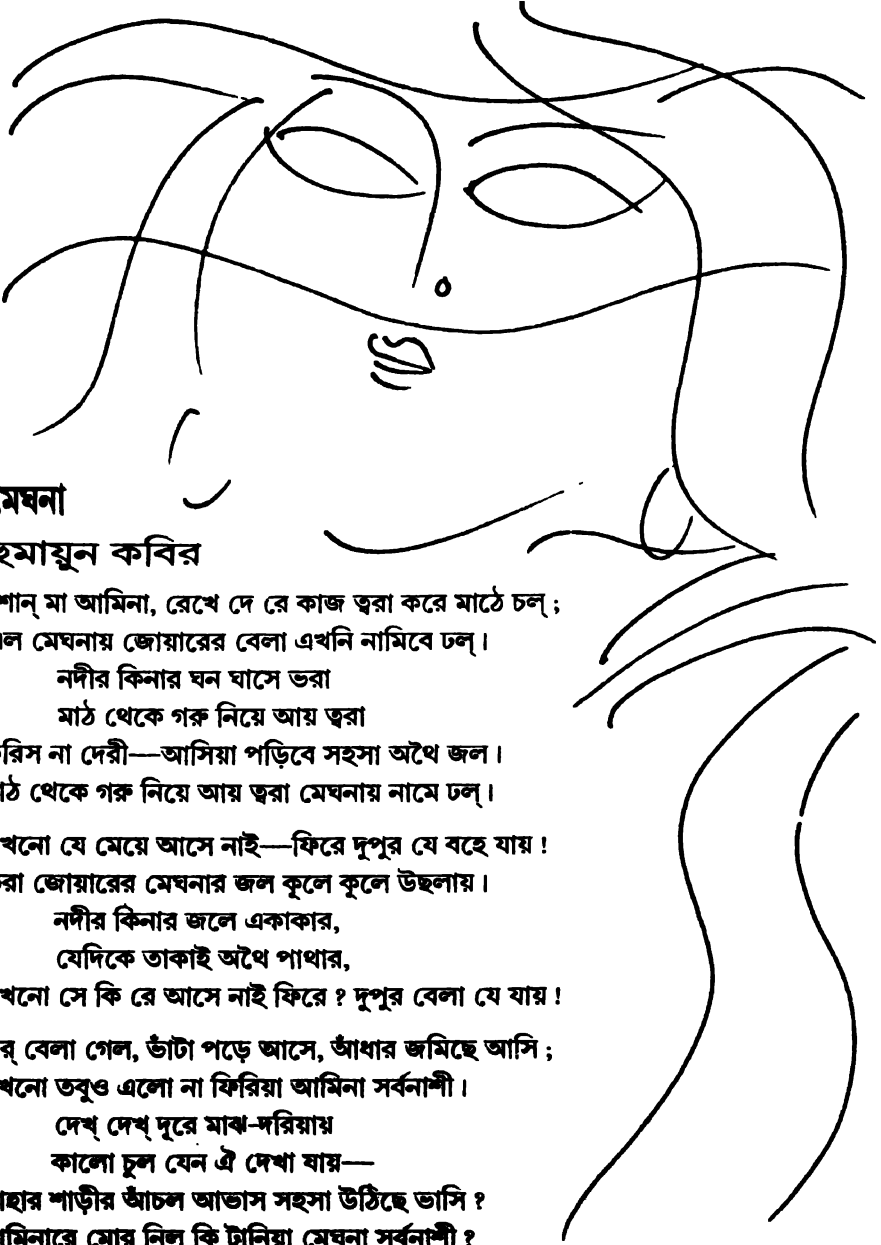 মেঘনা
হুমায়ুন কবির
শান্ মা আমিনা, রেখে দে রে কাজ ত্বরা করে মাঠে চল্ ;
ল মেঘনায় জোয়ারের বেলা এখনি নামিবে ঢল্ ।
নদীর কিনার ঘন ঘাসে ভরা
মাঠ থেকে গরু নিয়ে আয় ত্বরা
রিস না দেরী—আসিয়া পড়িবে সহসা অথৈ জল ।
াঠ থেকে গরু নিয়ে আয় ত্বরা মেঘনায় নামে ঢল্ ।
খনো যে মেয়ে আসে নাই—ফিরে দুপুর যে বহে যায় !
রা জোয়ারের মেঘনার জল কূলে কূলে উছলায় ।
নদীর কিনার জলে একাকার,
যেদিকে তাকাই অথৈ পাথার,
খনো সে কি রে আসে নাই ফিরে ? দুপুর বেলা যে যায় !
র্ বেলা গেল, ভাঁটা পড়ে আসে, আঁধার জমিছে আসি ;
খনো তবুও এলো না ফিরিয়া আমিনা সর্বনাশী ।
দেখ্ দেখ্ দূরে মাঝ-দরিয়ায়
কালো চুল যেন ঐ দেখা যায়—
াহার শাড়ীর আঁচল আভাস সহসা উঠিছে ভাসি ?
ামিনারে মোর নিল কি টানিয়া মেঘনা সর্বনাশী ?